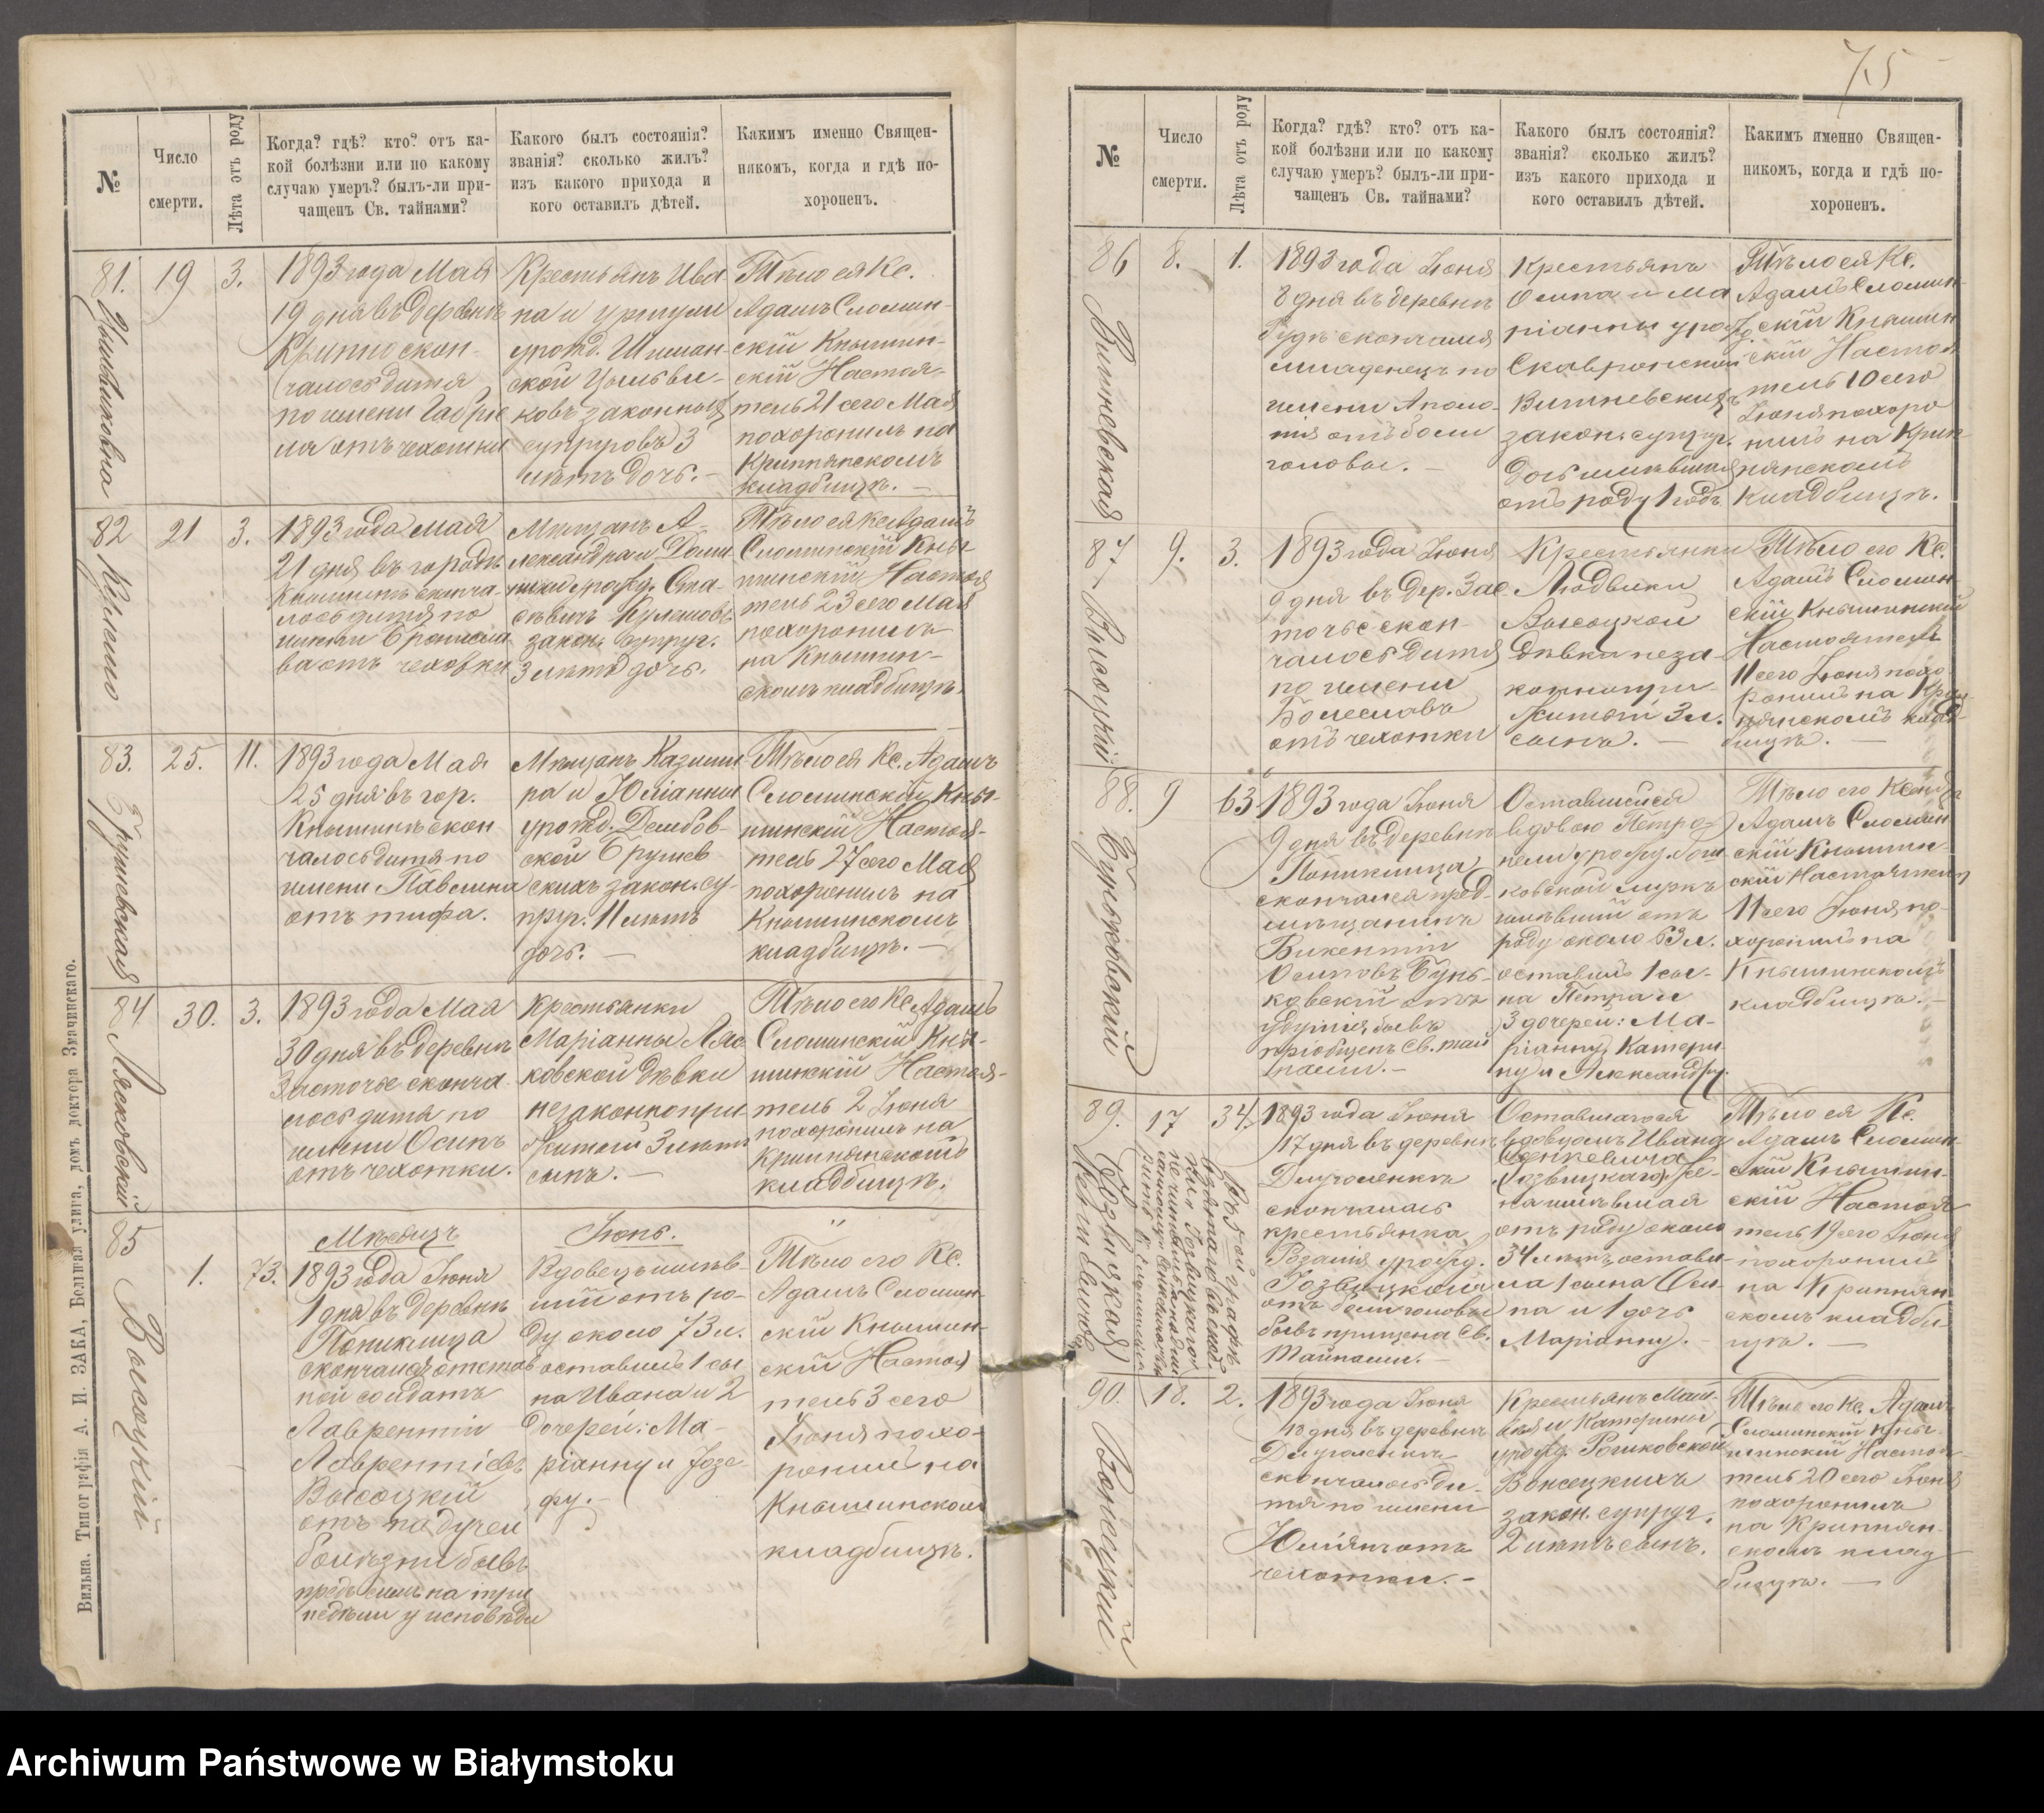 75
№
Число
смерти.
Лѣта отъ роду
Когда? гдѣ? кто? отъ ка-
кой болѣзни или по какому
случаю умеръ? былъ-ли при-
чащенъ Св. тайнами?
Какого былъ состоянія?
званія? сколько жилъ?
изъ какого прихода и
кого оставилъ дѣтей.
Какимъ именно Священ-
никомъ, когда и гдѣ по-
хороненъ.
81.
19
3.
1893 года Мая
19 дня въ деревнѣ
Крипно скон-
чалось дитя
по имени Габріе
ля отъ чехотки
Крестьянъ Ива
на и Уршули
урожд. Шиман-
ской
ковъ законныхъ
супруговъ 3
лѣтъ дочь. –
Тѣло ея Кс.
Адамъ Сломин-
скій Кнышин-
скій Настоя-
тель 21 сего Мая
похоронилъ на
Крипнянскомъ
кладбищѣ. –
82
21
3.
1893 года Мая
21 дня въ городѣ
Кнышинѣ сконча-
лось дитя по
имени Бронисла
ва отъ чехотки
Мѣщанъ А-
лександра и Доми
урожд. Ста-
закон. супруг.
3 лѣтъ дочь.
Тѣло ея Кс. Адамъ
Сломинскій Кны-
шинскій Настоя
тель 23 сего Мая
похоронилъ
на Кнышин-
скомъ кладбищѣ.
83.
Грушевская
25.
11.
1893 года Мая
25 дня въ гор.
Кнышинѣ скон
чалось дитя по
имени Павлина
отъ тифа.
Мѣщанъ Казими
ра и Юліанны
урожд. Дембов-
ской Грушев
скихъ закон. су-
пруг. 11 лѣтъ
дочь. –
Тѣло ея Кс. Адамъ
Сломинскій Кны-
шинскій Настоя-
тель 27 сего Мая
похоронилъ на
Кнышинскомъ
кладбищѣ. –
84
Лясковскій
30.
3.
1893 года Мая
30 дня въ деревнѣ
Засточье сконча
лось дитя по
имени Осипъ
отъ чехотки.
Крестьянки
Маріанны Ляс
ковской дѣвки
незаконнопри
житый 3 лѣтъ
сынъ. –
Тѣло его Кс. Адамъ
Сломинскій Кны-
шинскій Настоя-
тель 2 Іюня
похоронилъ на
Крипнянскомъ
кладбищѣ.
85
Высоцкій
Мѣсяцъ
Іюнь.
1.
73.
1893 года Іюня
1 дня въ деревнѣ
Пониклица
скончался отстав
ной солдатъ
Лаврентій
Лаврентіевъ
Высоцкій
отъ падучей
болѣзни бывъ
предъ симъ на три
недѣли у исповѣди
Вдовецъ имѣв-
шій отъ ро-
ду около 73 л.
оставилъ 1 сы
на Ивана и 2
дочерей: Ма-
ріанну и Юзе-
фу. –
Тѣло его Кс.
Адамъ Сломин-
скій Кнышин-
скій Настоя
тель 3 сего
Іюня похо-
ронилъ на
Кнышинскомъ
кладбищѣ.
Вильна. Типографія А. И. ЗАКА, Большая улица, домъ доктора Змачинскаго.
№
Число
смерти.
Лѣта отъ роду
Когда? гдѣ? кто? отъ ка-
кой болѣзни или по какому
случаю умеръ? былъ-ли при-
чащенъ Св. тайнами?
Какого былъ состоянія?
званія? сколько жилъ?
изъ какого прихода и
кого оставилъ дѣтей.
Какимъ именно Священ-
никомъ, когда и гдѣ по-
хороненъ.
86
Вишневская
8.
1.
1893 года Іюня
8 дня въ деревнѣ
Рудѣ скончался
младенецъ по
имени Аполо-
нія отъ боли
головы. –
Крестьянъ
Осипа и Ма
ріанны урожд.
Скавронской
Вишневскихъ
закон. супруг.
дочь имѣвшая
отъ роду 1 годъ
Тѣло ея Кс.
Адамъ Сломин-
скій Кнышин
скій Настоя
тель 10 сего
Іюня похоро
нилъ на Крип-
нянскомъ
кладбищѣ.
87
Высоцкій
9.
3.
1893 года Іюня
9 дня въ дер. Зас
точье скон-
чалось дитя
по имени
Болеславъ
отъ чехотки
Крестьянки
Людвики
Высоцкой
дѣвки неза-
коннопри-
житый 3 л.
сынъ. –
Тѣло его Кс.
Адамъ Сломин-
скій Кнышинскій
Настоятель
11 сего Іюня похо
ронилъ на Крип-
нянскомъ клад-
бищѣ. –
88.
Буньковскій
9
63
1893 года Іюня
9 дня въ деревнѣ
Пониклица
скончался
мѣщанинъ
Викентій
Осиповъ Бунь-
ковскій отъ
бывъ
пріобщенъ Св. тай
нами. –
Оставшейся
вдовою Петро-
нели урожд.
ковской мужъ
имѣвшій отъ
роду около 63 л.
оставилъ 1 сы-
на Петра и
3 дочерей: Ма-
ріанну, Катери-
ну и Александру.
Тѣло его Ксендзъ
Адамъ Сломин
скій Кнышин-
скій Настоятель
11 сего Іюня по-
хоронилъ на
Кнышинскомъ
кладбищѣ. –
89.
17
34.
1893 года Іюня
17 дня въ деревнѣ
Длуголенкѣ
скончалась
крестьянка
Розалія урожд.
отъ боли головы
бывъ причщена Св.
Тайнами. –
Оставшагося
вдовцомъ Ивана
Сенкевича
же-
на имѣвшая
отъ роду около
34 лѣтъ остави-
ла 1 сына Оси-
па и 1 дочь
Маріанну. –
Тѣло ея Кс.
Адамъ Сломин-
скій Кнышин-
скій Настоя
тель 19 сего Іюня
похоронилъ
на Крипнян
скомъ кладби
щѣ. –
90.
Вонсецкій
18.
2.
1893 года Іюня
18 дня въ деревнѣ
Длуголенкѣ
скончалось ди-
тя по имени
Юліянъ отъ
чехотки. –
Крестьянъ Мат
вѣя и Катерины
урожд. Рошковской
Вонсецкихъ
закон. супруг.
2 лѣтъ сынъ.
Тѣло его Кс. Адамъ
Сломинскій Кны-
шинскій Настоя-
тель 20 сего Іюня
похоронилъ
на Крипнян-
скомъ клад
бищѣ. –
Archiwum Państwowe w Białymstoku